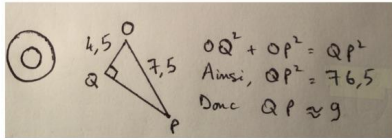 O
4,5
7,5
Q
P
OQ² + OP² = QP²
Ainsi, QP² = 76,5
Donc QP ≈ 9